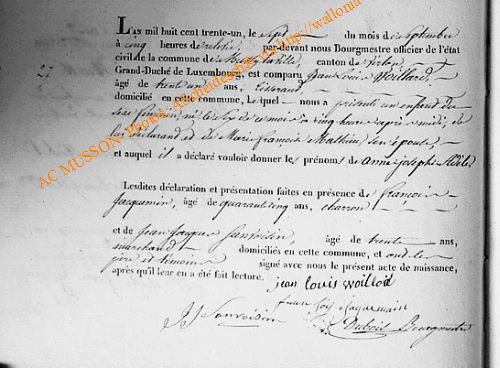 L'AN mil huit cent trente-un, le sept du mois de Septembre
à cinq heures de relevée, par-devant nous Bourgmestre officier de l'état
civil de la commune de Musson, canton de Virton,
Grand-Duché de Luxembourg, est comparu Jean Louis Woillard
âgé de trente un ans, tisserand
domicilié en cette commune, lequel nous a présenté un enfant du
sexe féminin, né le sept de ce mois à cinq heures après midi, de
lui déclarant et de Marie françoise Mathieu son épouse
et auquel il a déclaré vouloir donner les prénoms de anne josephe Adèle
Lesdites déclaration et présentation faites en présence de françois
Jacquemin, âgé de quarante cinq ans, charron
et de jean jacques Sanvoisin, âgé de trente ans,
marchand domiciliés en cette commune, et ont les
père et témoins signé avec nous le présent acte de naissance,
après qu'il leur en a été fait lecture.
jean louis woillod
Jacquemain
JJ Sanvoisin
Dubois Bourgmestre
27
AC MUSSON